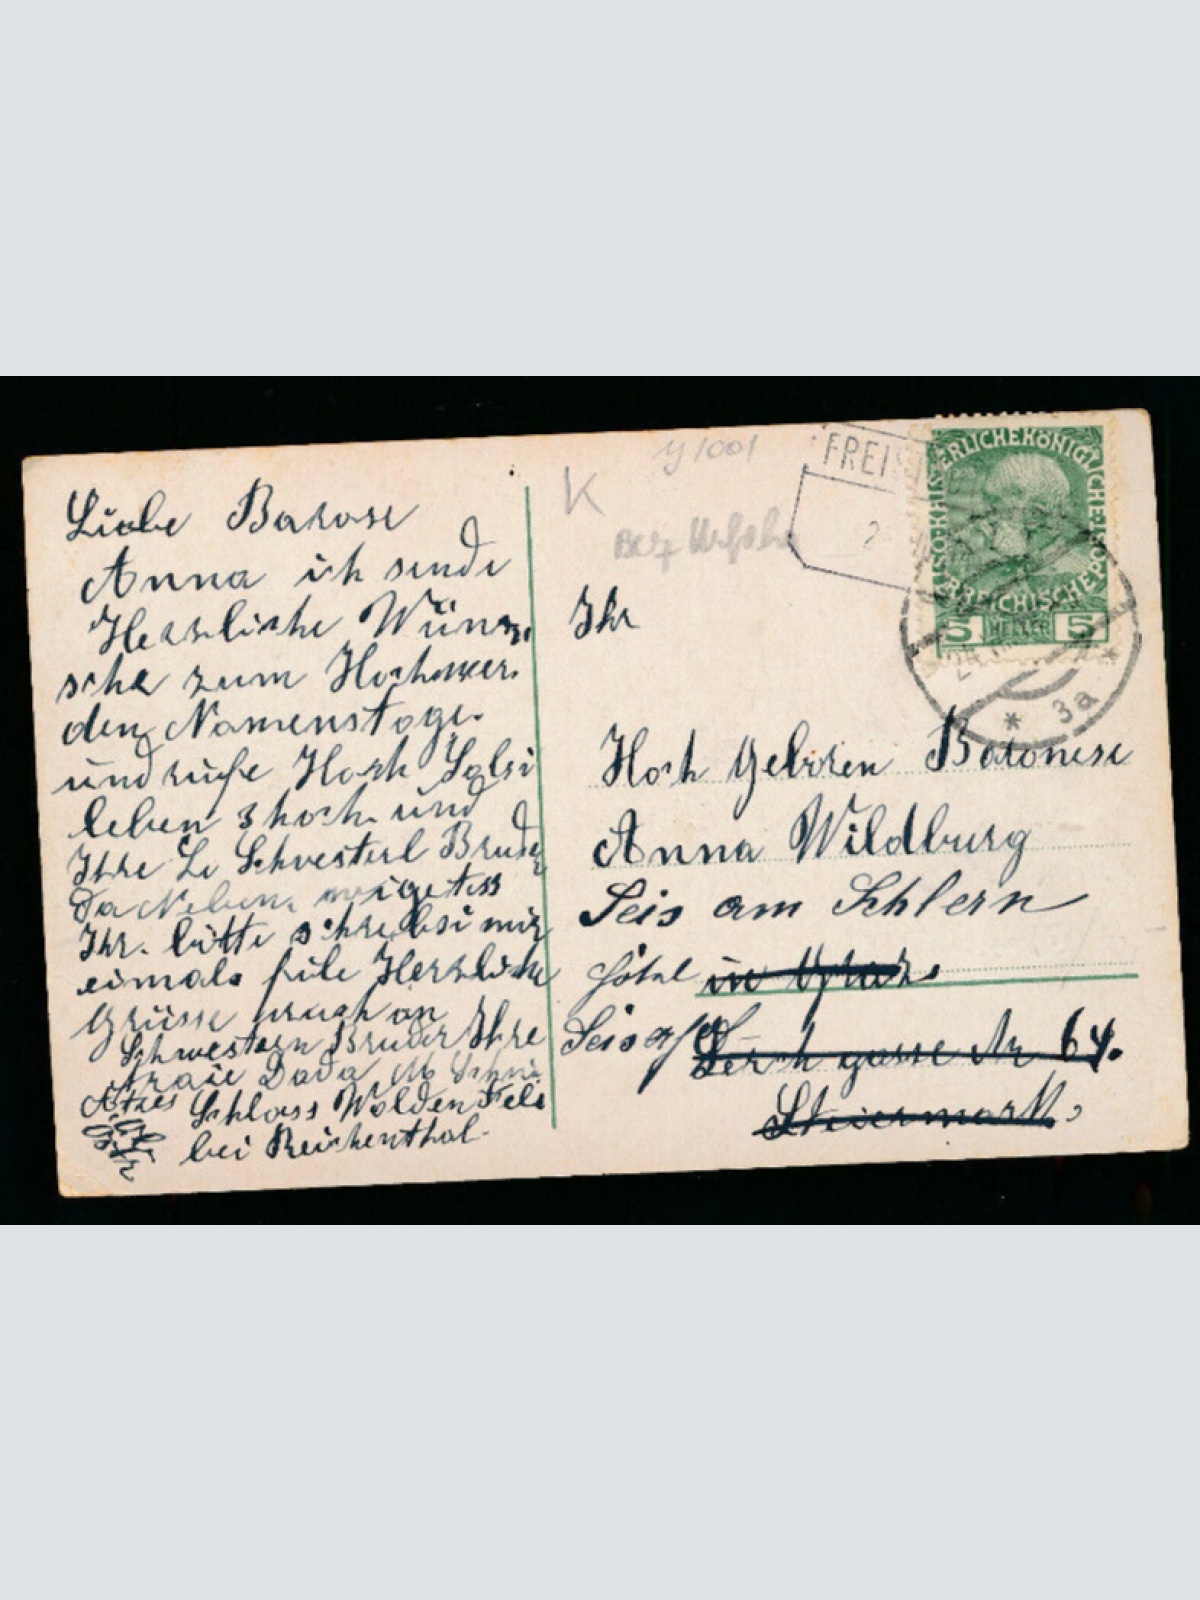 Liebe Barose
Anna ich sende
Herzliche Wün-
sche zum Hochwer.
den Namenstage.
und rufe Hoch Solsi
leben 3 hoch und
Ihre Li Schvesterl Bruder
Da Neben
Ihr. bitte schreibsi mir
eimals file Herzliche
Grüsse auch an
Schwestern Bruder Ihre
Dada
Schloss Waldenfels
bei Reichenthal.
K
y1001
Berz Urfahr
FREIS
2
KAISERLICHEKÖNIGLICHE
ÖSTERREICHISCHEPOST
5 HELLER 5
* 3a **
Ihr
Hoch Geboren Baronese
Anna Wildburg
Seis am Schlern
Hotel in Graz.
Seis a/
Lerch gasse Nr 64.
Steiermark.